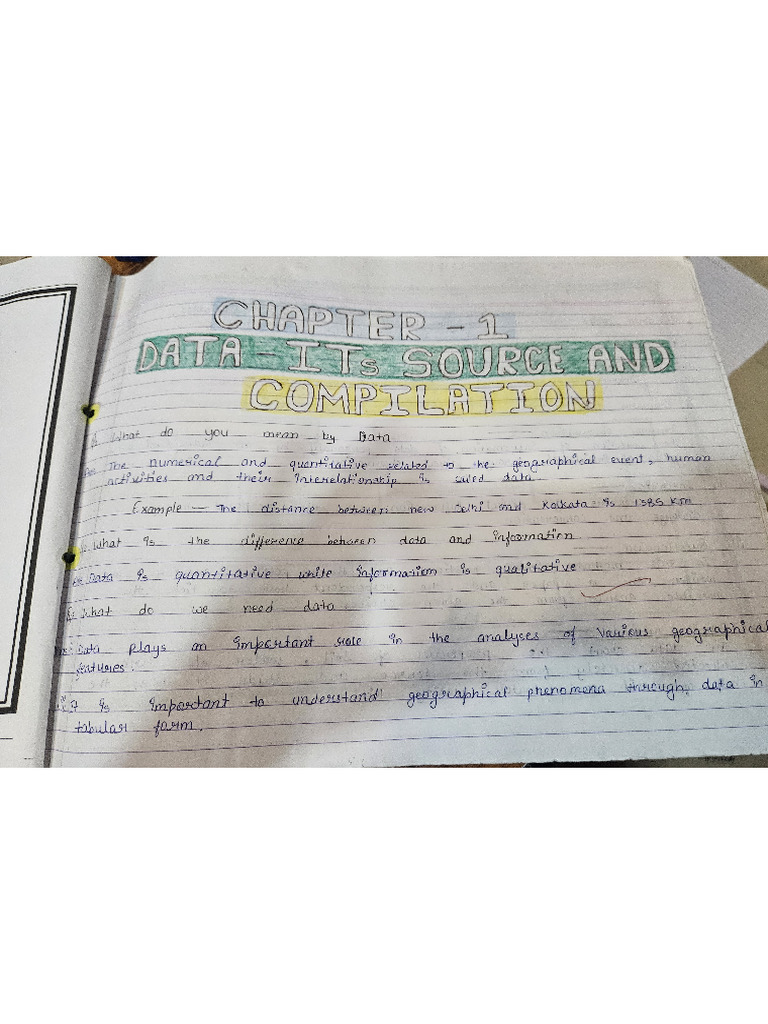 CHAPTER - 1
DATA - ITs SOURCE AND
COMPILATION
Q. What do you mean by Data
Ans The numerical and quantitative related to the geographical event, human
activities and their Interelationship is called data.
Example — The distance between new Delhi and Kolkata is 1385 Km
Q. What is the difference between data and information
Data is quantitative while information is qualitative
Q. What do we need data
Data plays an important role in the analyses of various geographical
features.
It is important to understand geographical phenomena through data in
tabular form.